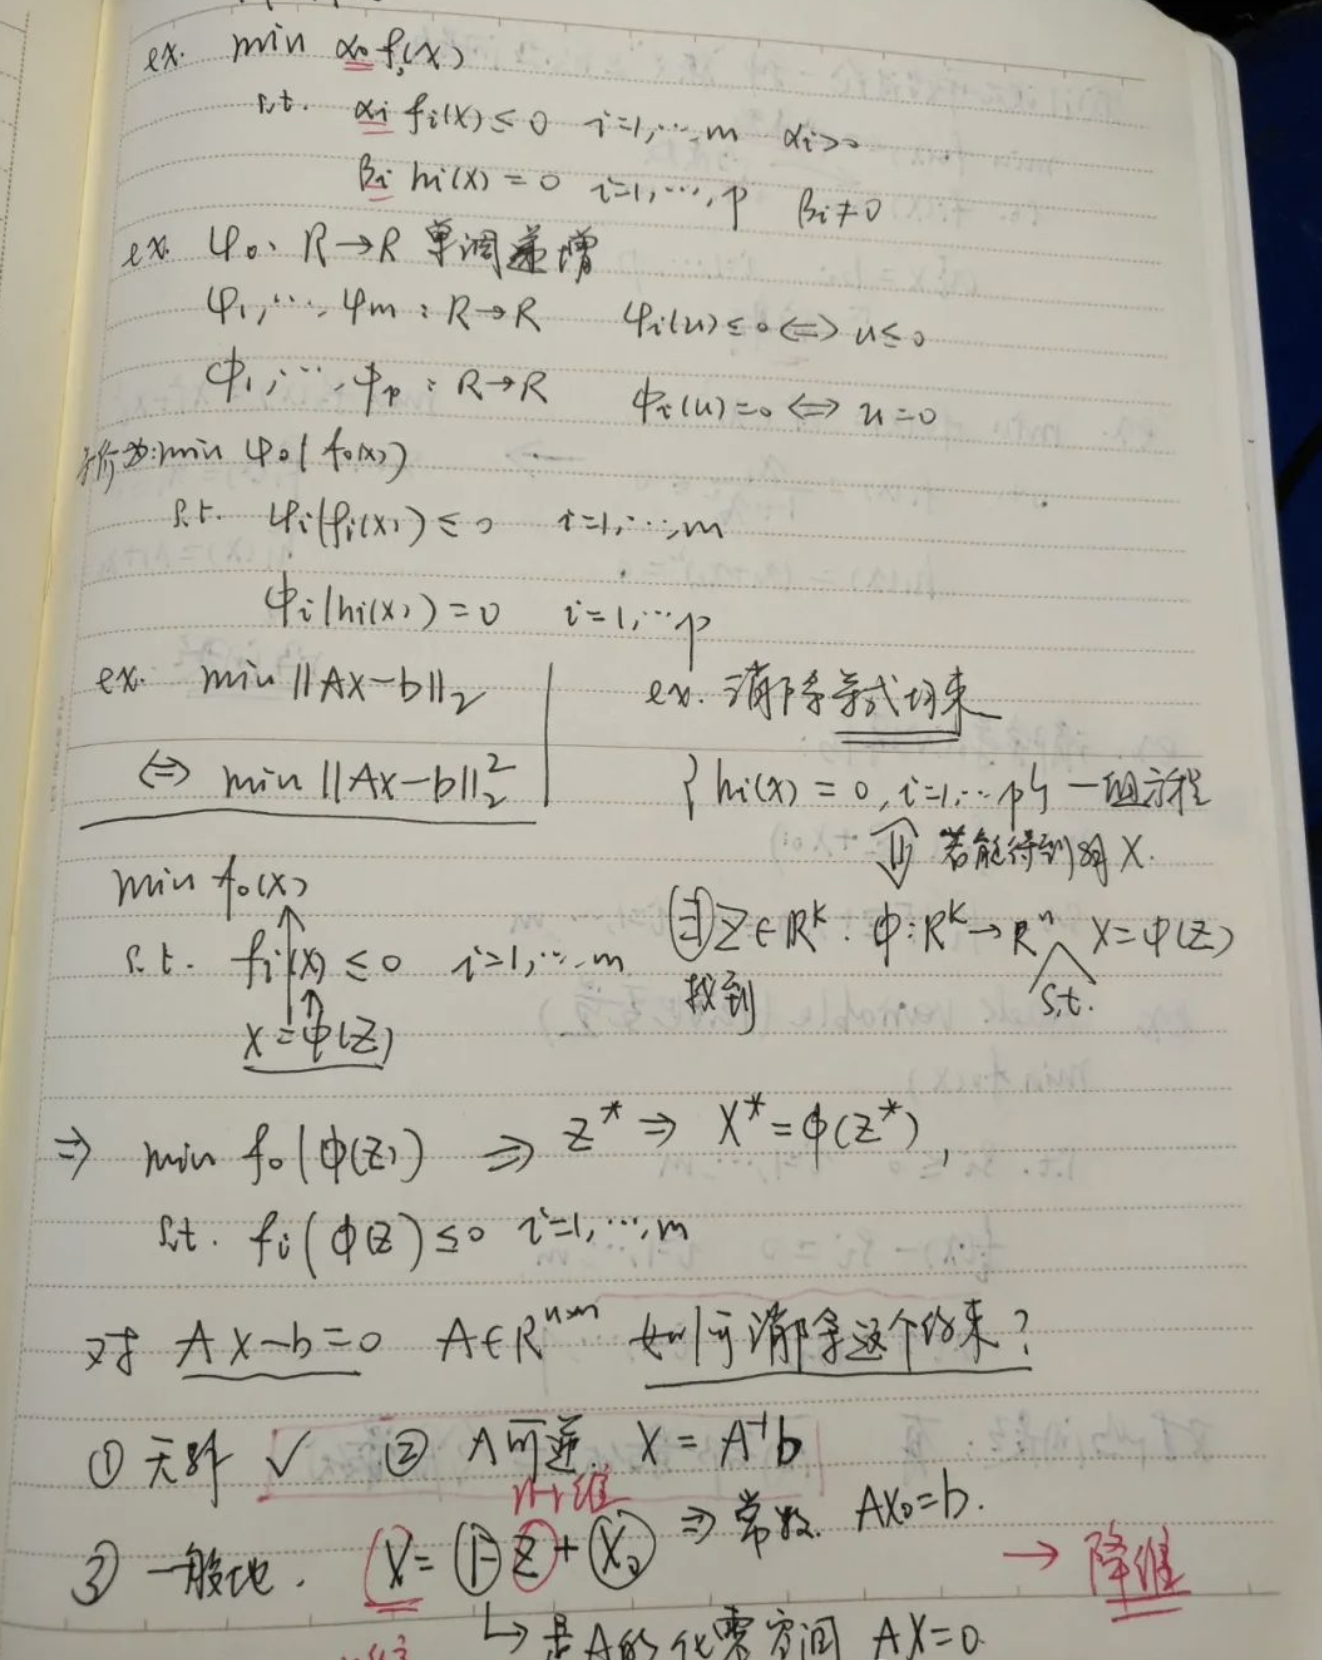 ex. min α₀ f₀(x)
s.t. αi fi(x) ≤ 0 i=1,…,m αi>0
βi hi(x) = 0 i=1,…,p βi≠0
ex. φ₀: R→R 单调递增
φ₁,…,φm : R→R φi(u)≤0 ⇔ u≤0
ϕ₁,…,ϕp : R→R ϕi(u)=0 ⇔ u=0
等价为: min φ₀(f₀(x))
s.t. φi(fi(x)) ≤ 0 i=1,…,m
ϕi(hi(x)) = 0 i=1,…p
ex. min ||Ax-b||₂
⇔ min ||Ax-b||₂²
ex. 消除等式约束
{hi(x) = 0, i=1,…p} 一组方程
⇓ 若能得到解 x.
∃ z∈R^k. ϕ: R^k→R^n x=φ(z)
找到 s.t.
min f₀(x)
s.t. fi(x) ≤ 0 i=1,…,m
x = ϕ(z)
⇒ min f₀(ϕ(z)) ⇒ z* ⇒ x* = ϕ(z*),
s.t. fi(ϕ(z) ≤0 i=1,…,m
对 Ax-b=0 A∈R^{n×m} 如何消除这个约束?
① 无解 ✓ ② A可逆. x = A⁻¹b
n-r维
③ 一般地. x = Fz + x₀ ⇒ 常数. Ax₀=b. → 降维
↳ 是A的化零空间 Ax=0.